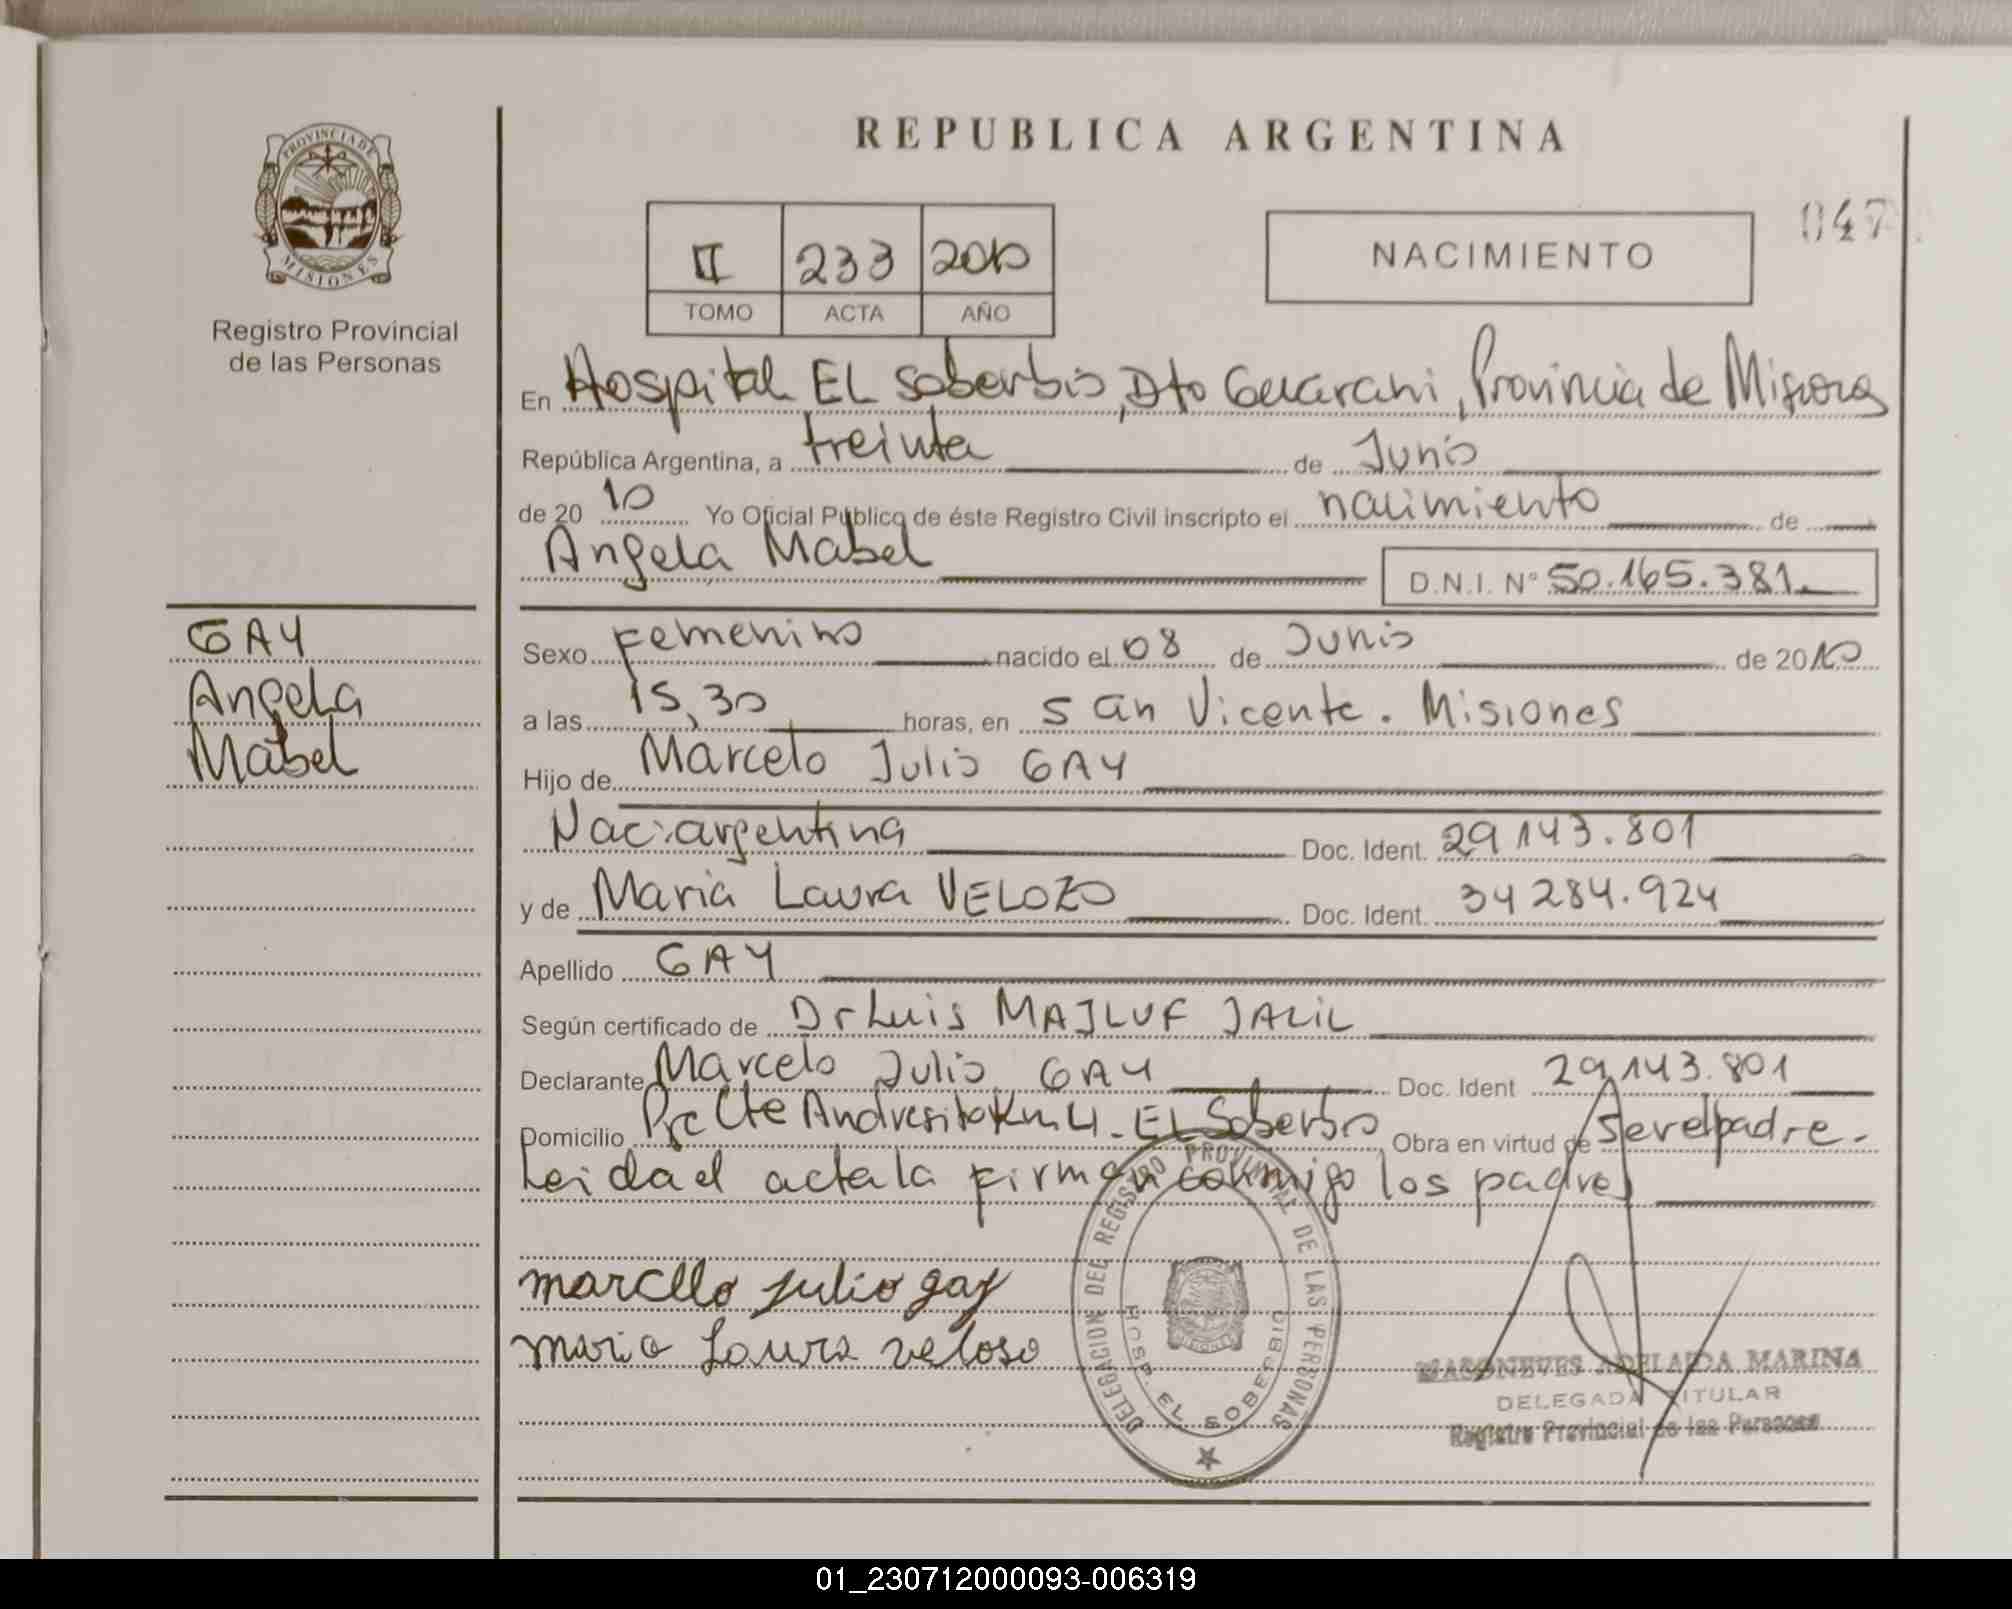 PROVINCIA DE
MISIONES
Registro Provincial
de las Personas
REPUBLICA ARGENTINA
II 233 2010
TOMO ACTA AÑO
NACIMIENTO
047
En Hospital EL Soberbio, Dto Guarani, Provincia de Misiones
República Argentina, a treinta de Junio
de 2010 Yo Oficial Público de éste Registro Civil inscripto el nacimiento de
Angela Mabel
D.N.I. N° 50.165.381.
GAY
Angela
Mabel
Sexo femenino nacido el 08 de Junio de 2010
a las 15,30 horas, en San Vicente. Misiones
Hijo de Marcelo Julio GAY
Nac: argentina Doc. Ident. 29 143.801
y de Maria Laura VELOZO Doc. Ident. 34 284.924
Apellido GAY
Según certificado de Dr Luis MAJLUF JALIL
Declarante Marcelo Julio GAY Doc. Ident 29.143.801
Domicilio Pje Cte Andresito Km 4. EL Soberbio Obra en virtud de Ser el padre.
Leida el acta la firman conmigo los padres
marcelo julio gay
maria Laura veloso
DELEGACION DEL REGISTRO PROVINCIAL DE LAS PERSONAS
HOSP. EL SOBERBIO
ADELAIDA MARINA
DELEGADA TITULAR
Registro Provincial de las Personas
01_230712000093-006319